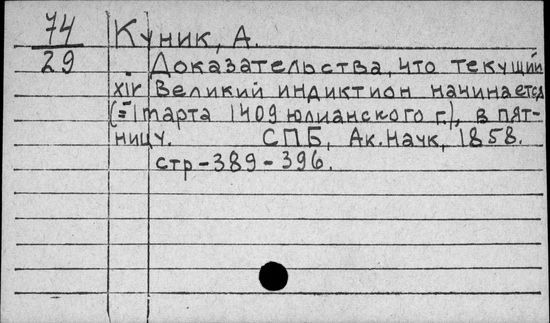 74 Куник, А.
29 Доказательства, что текущий
XIV Великий индиктион начинается
(=1 марта 1409 юлианского г.), в пят-
ницу. СПБ, Ак. наук, 1858.
стр-389-396.